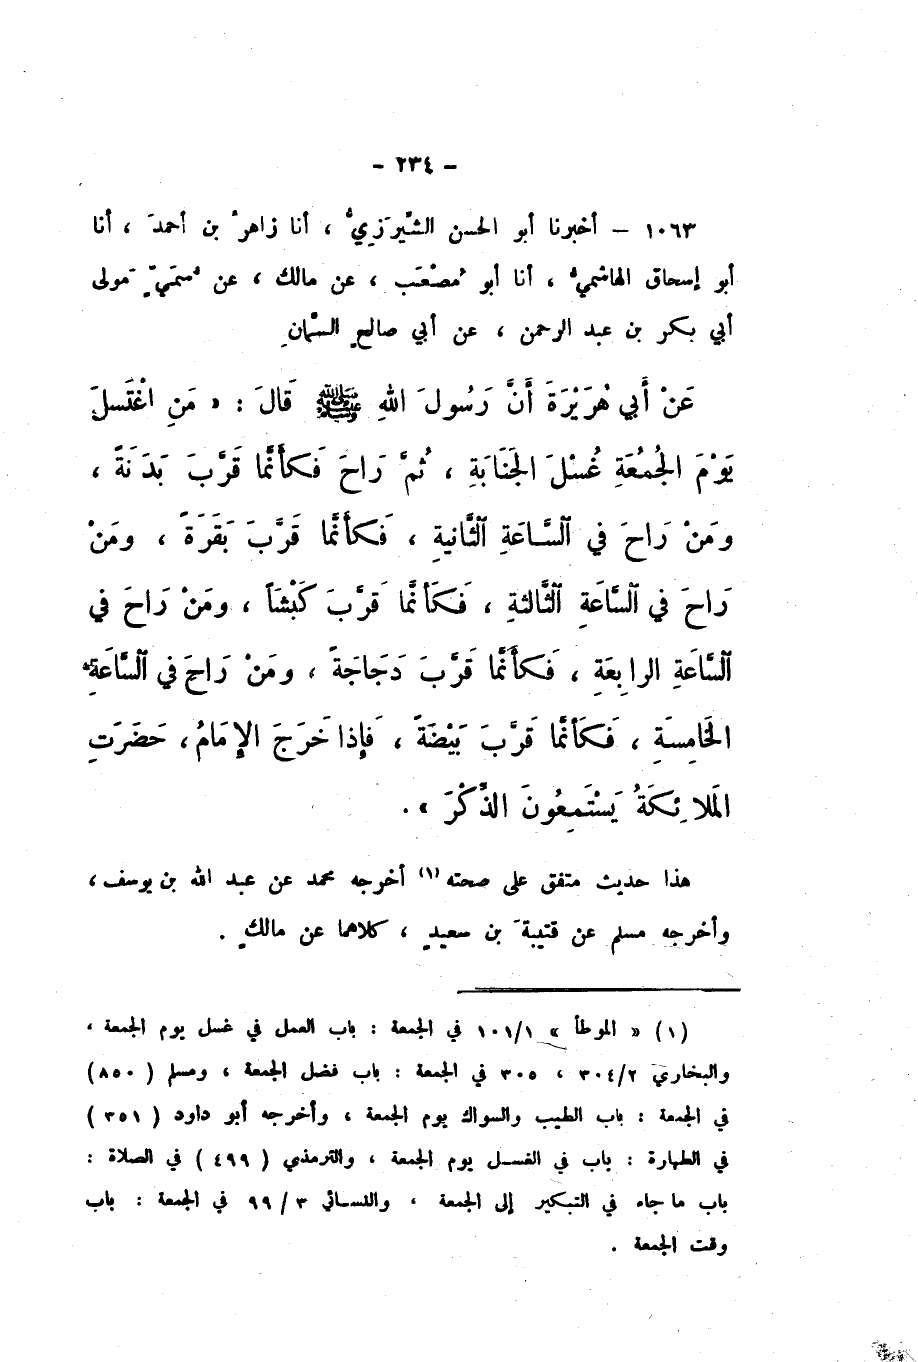 - ٢٣٤ -
١٠٦٣ – أخبرنا أبو الحسن الشِّيرَزِيُّ ، أنا زاهرُ بن أحمدَ ، أنا
أبو إسحاق الهاشميُّ ، أنا أبو مُصْعَب ، عن مالك ، عن سُمَيٍّ مَولى
أبي بكر بن عبد الرحمن ، عن أبي صالحٍ السَّمانِ
عَنْ أَبِي هُرَيْرَةَ أَنَّ رَسُولَ اللهِ ﷺ قَالَ : « مَنِ اغْتَسَلَ
يَوْمَ الجُمُعَةِ غُسْلَ الجَنَابَةِ ، ثُمَّ رَاحَ فَكَأَنَّمَا قَرَّبَ بَدَنَةً ،
ومَنْ رَاحَ فِي السَّاعَةِ الثَّانِيةِ ، فَكَأَنَّمَا قَرَّبَ بَقَرَةً ، ومَنْ
رَاحَ فِي السَّاعَةِ الثَّالثةِ ، فَكَأَنَّمَا قَرَّبَ كَبْشَاً ، ومَنْ رَاحَ فِي
السَّاعَةِ الرابِعَةِ ، فَكَأَنَّمَا قَرَّبَ دَجَاجَةً ، ومَنْ رَاحَ فِي السَّاعَةِ
الخَامِسَةِ ، فَكَأَنَّمَا قَرَّبَ بَيْضَةً ، فَإِذا خَرَجَ الإِمَامُ ، حَضَرَتِ
المَلائِكَةُ يَسْتَمِعُونَ الذِّكْرَ » .
هذا حديث متفق على صحته (١) أخرجه محمد عن عبد الله بن يوسف ،
وأخرجه مسلم عن قتيبةَ بن سعيدٍ ، كلاهما عن مالكٍ .
(١) « الموطأ » ١٠١/١ في الجمعة : باب العمل في غسل يوم الجمعة ،
والبخاري ٣٠٤/٢ ، ٣٠٥ في الجمعة : باب فضل الجمعة ، ومسلم ( ٨٥٠)
في الجمعة : باب الطيب والسواك يوم الجمعة ، وأخرجه أبو داود ( ٣٥١ )
في الطهارة : باب في الغسل يوم الجمعة ، والترمذي ( ٤٩٩ ) في الصلاة :
باب ما جاء في التبكير إلى الجمعة ، والنسائي ٣ / ٩٩ في الجمعة : باب
وقت الجمعة .